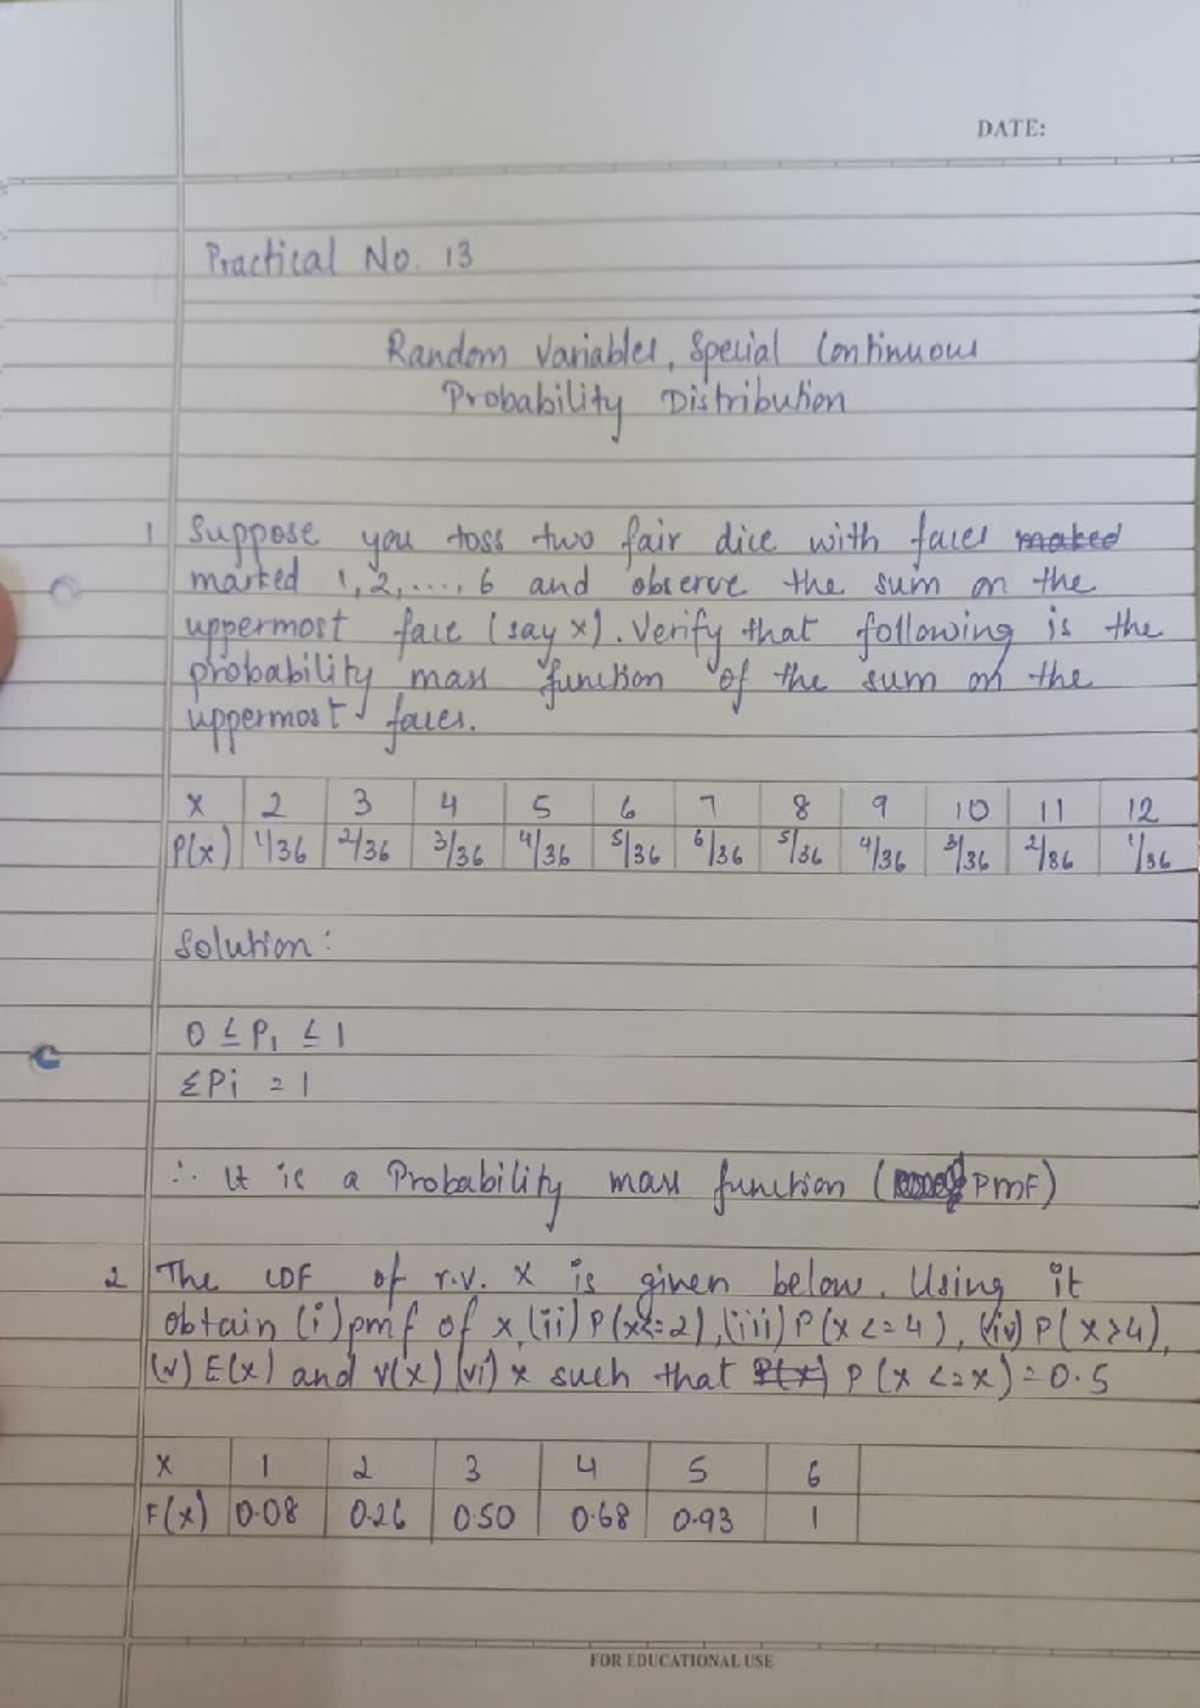 DATE:
Practical No. 13
Random Variables, Special Continuous
Probability Distribution
1 Suppose you toss two fair dice with faces maked
marked 1, 2, ...., 6 and observe the sum on the
uppermost face (say x). Verify that following is the
probability mass function of the sum on the
uppermost faces.
X 2 3 4 5 6 7 8 9 10 11 12
P(x) 1/36 2/36 3/36 4/36 5/36 6/36 5/36 4/36 3/36 2/36 1/36
Solution:
0 ≤ P₁ ≤ 1
ΣPi = 1
∴ It is a Probability mass function ( PMF)
2 The CDF of r.v. X is given below. Using it
obtain (i) pmf of x, (ii) P(x<=2), (iii) P(x<=4), (iv) P(x>4),
(v) E(x) and v(x) (vi) x such that P(x) P(x<=x)=0.5
X 1 2 3 4 5 6
F(x) 0.08 0.26 0.50 0.68 0.93 1
FOR EDUCATIONAL USE